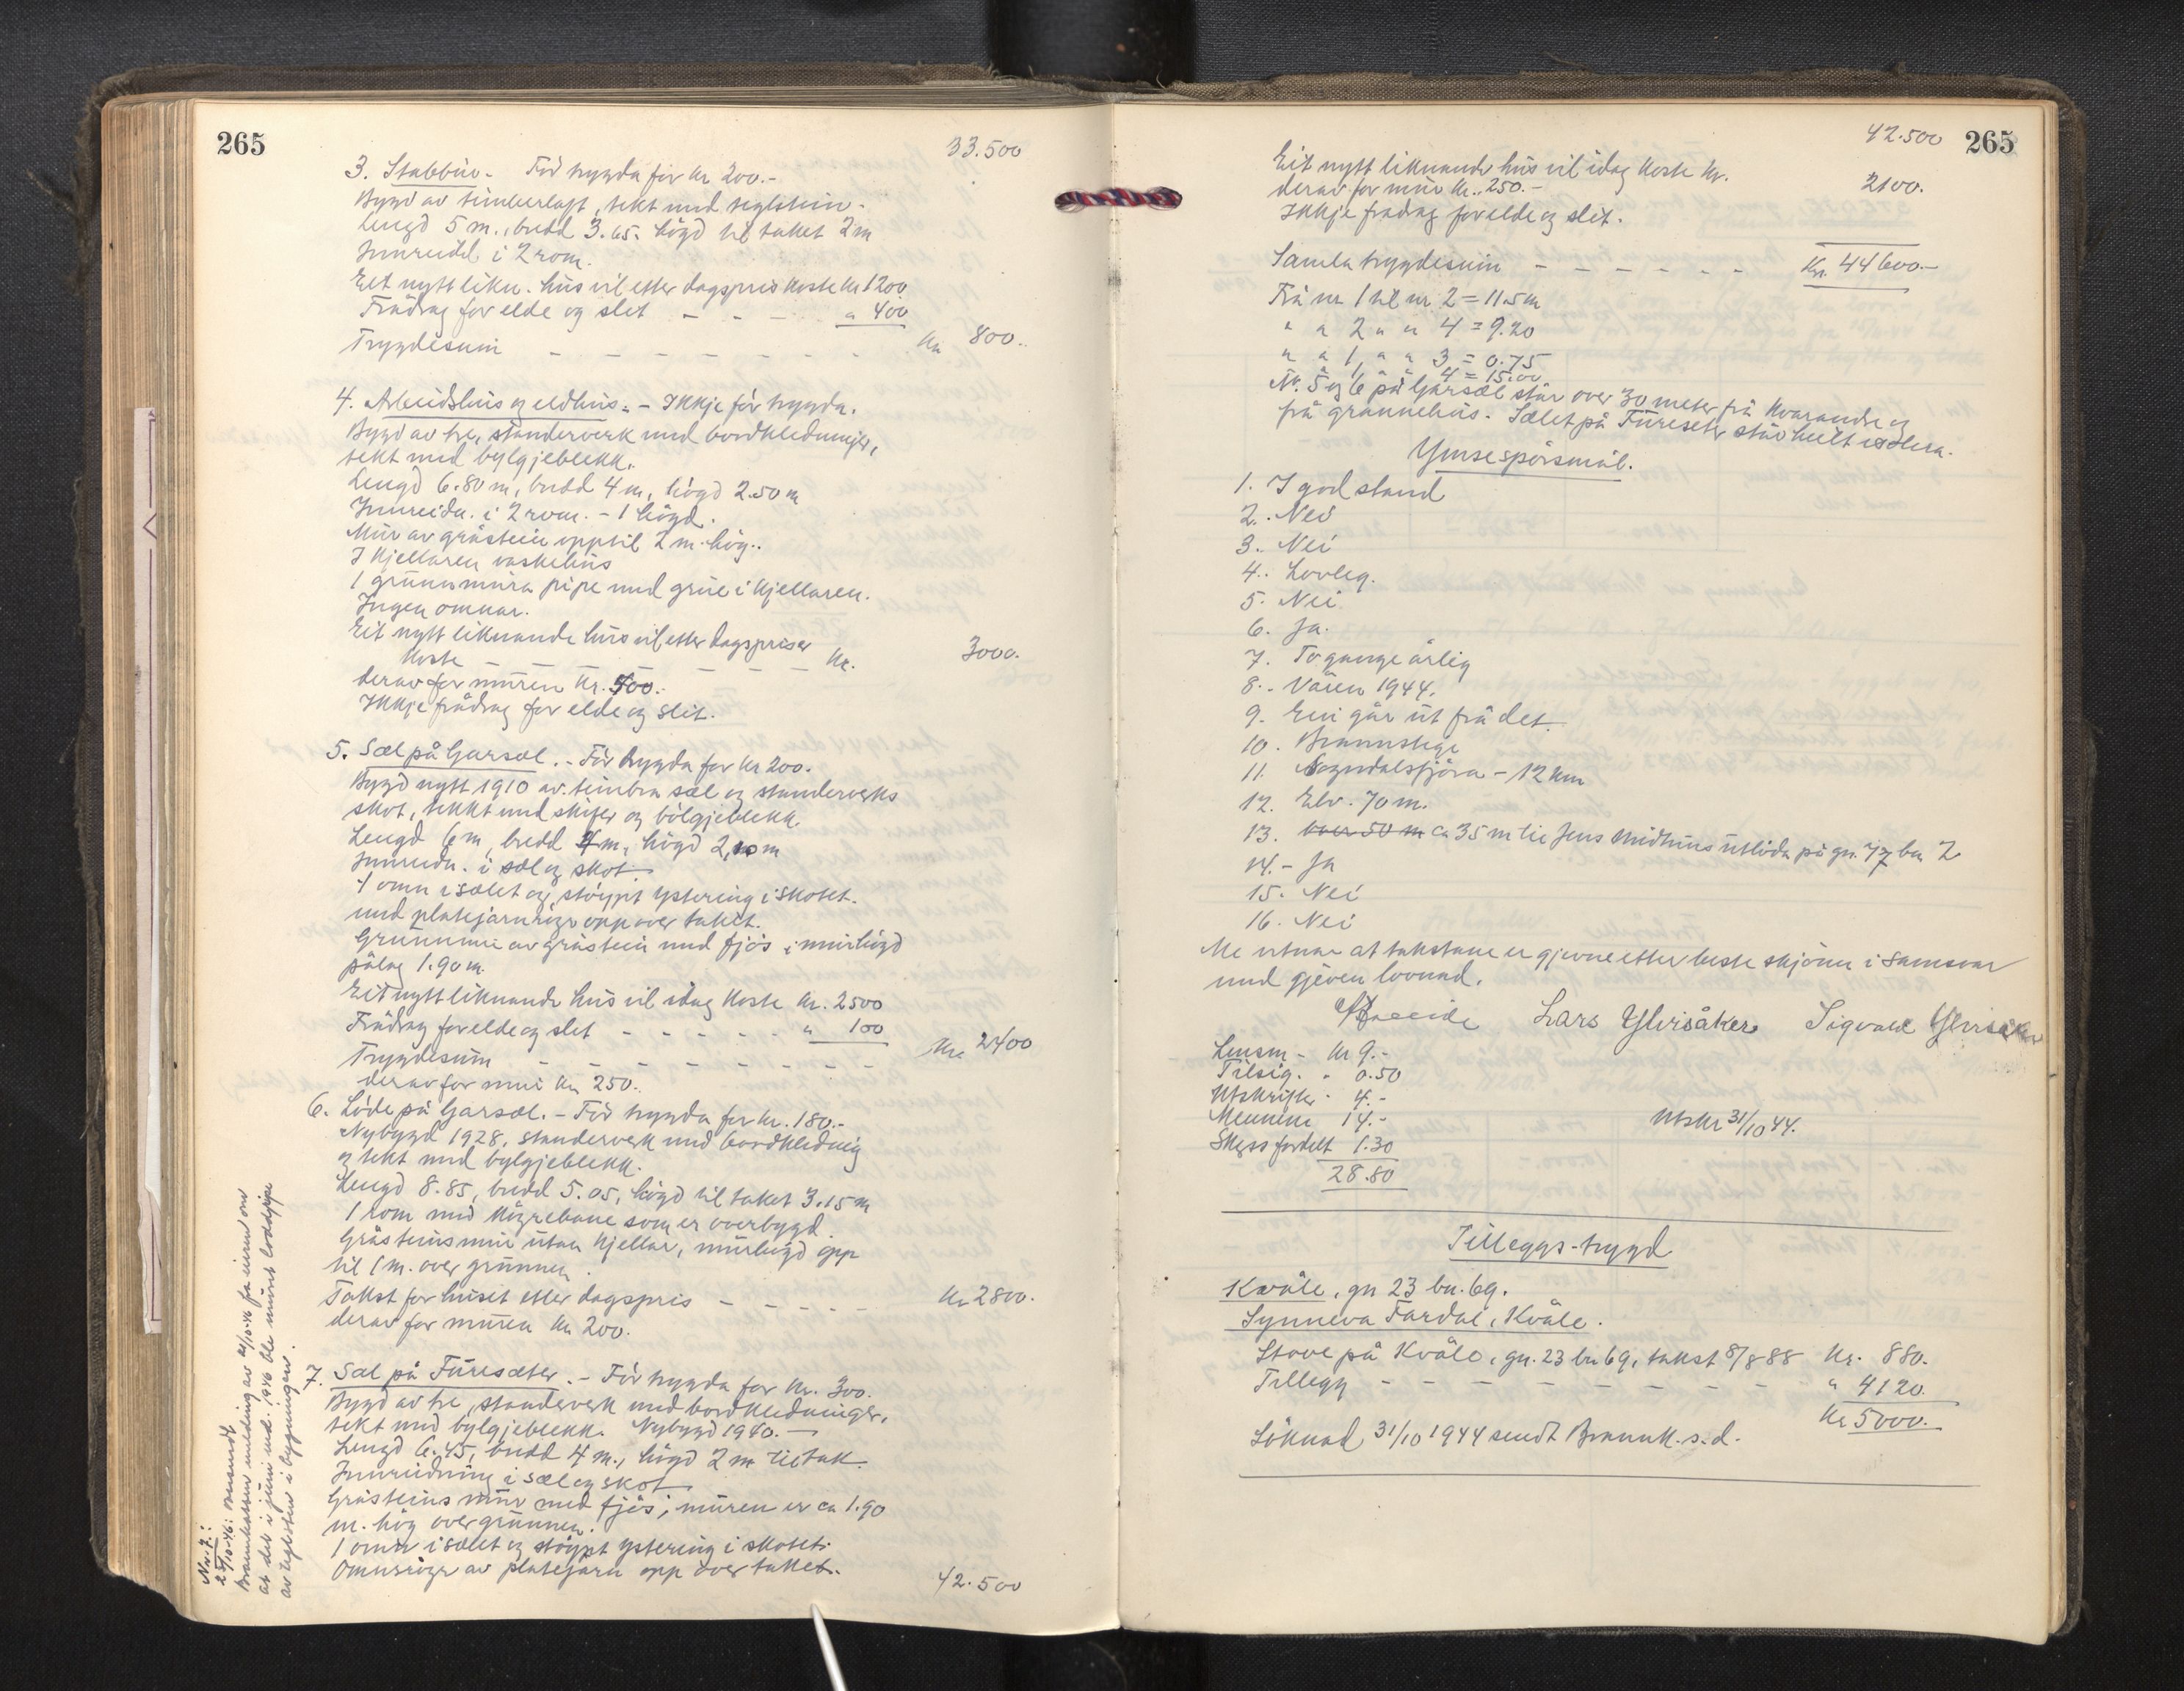 265
33.500
3. Stabbur. - För trygda for kr 200.-
Bygd av timberlaft, tekt med teglstein.
Lengd 5 m., bredd 3.65. högd til taket 2 m
Innreidd i 2 rom.
Eit nytt likn. hus vil etter dagspris koste kr 1200
Frådrag for elde og slit - - - " 400
Trygdesum - - - - - - - kr 800.-
4. Arbeidshus og eldhus. - Ikkje för trygda.
Bygd av tre, standerverk med bordkledninger,
tekt med bylgjeblekk.
Lengd 6.80 m, bredd 4 m, högd 2.50 m
Innreidn. i 2 rom. - 1 högd.
Mur av gråstein opptil 2 m. hög..
I kjellaren vaskehus
1 grunnmura pipe med grue i kjellaren.
Ingen omnar.
Eit nytt liknande hus vil etter dagspriser
koste - - - - - - - kr. 3000.
derav for muren kr. 500.-
Ikkje frådrag for elde og slit.
5. Sæl på Garsæl. - För trygda for kr 200.
Bygd nytt 1910 av timbra sæl og standerverks
skot, tekkt med skifer og bölgjeblekk
Lengd 6 m, bredd 4 m, högd 2,10 m
Innreidn. i sæl og skot.
1 omn i sælet og stöypt ystering i skotet.
med platejarnrör opp over taket.
Grunnmur av gråstein med fjös i murhögd
pålag 1.90 m.
Eit nytt liknande hus vil idag koste kr. 2500
Frådrag for elde og slit - - - - - " 100
Trygdesum - - - - - - - - - kr. 2400
derav for mur kr 250.
6. Löde på Garsæl. - För trygda for kr. 180.-
Nybygd 1928, standerverk med bordkledning
og tekt med bylgjeblekk.
Lengd 8.85, bredd 5.05, högd til taket 3.15 m
1 rom med köyrebane som er overbygd.
Gråsteinsmur utan kjellar, murhögd opp
til 1 m. over grunnen.
Takst for huset etter dagspris - - - - - kr 2800.
derav for muren kr 200.
7. Sæl på Furesæter. - För trygda for kr. 300.
Bygd av tre, standerverk med bordkledninger,
tekt med bylgjeblekk. Nybygd 1940. -
Lengd 6.45, bredd 4 m., högd 2 m til tak.
Innreidning i sæl og skot.
Gråsteins mur med fjös, muren er ca 1.90
m. hög over grunnen.
1 omn i sælet og stöypt ystering i skotet.
Omnsrör av platejarn opp over taket.
42.500
Nr. 7:
25/10-46:
Brannkassen melding av 21/10-46 frå eieren om
at det i juni md. 1946 ble murt loddpipe
av teglstein i bygningen.
42.500 265
Eit nytt liknande hus vil idag koste kr. 2100.
derav for mur kr. 250.-
Ikkje frådrag for elde og slit.
Samla trygdesum - - - - - - Kr. 44600.-
Frå nr 1 til nr 2 = 11.5 m
" " 2 " " 4 = 9.20
" " 1, " " 3 = 0.75
" " 4 = 15.00
Nr. 5 og 6 på Garsæl står over 30 meter frå kvarandre og
frå grannehus. Sælet på Fureseter står heilt isolera.
Ymse spörsmål.
1. I god stand
2. Nei
3. Nei
4. Lovleg.
5. Nei
6. Ja.
7. To gange årlig
8. Våren 1944.
9. Ein går ut frå det.
10. Brannstige
11. Sogndalsfjöra - 12 km
12. Elv. 70 m.
13. over 50 m ca 35 m til Jens Midthus utlöda på gn. 77 bn 2
14. - Ja
15. Nei
16. Nei
Me vitnar at takstane er gjevne etter beste skjönn i samsvar
med gjeven lovnad.
Lars Ylvisåker Sigvald Ylvisåker
Lensm - kr 9.-
Tilsig. " 0.50
Utskrifter " 4.-
Mennene 14.-
Skyss fordelt 1.30
28.80
Utskr 31/10 44.
Tilleggs-trygd
Kvåle, gn 23 bn. 69.
Synneva Fardal, Kvåle.
Stove på Kvåle, gn. 23 bn 69, takst 8/8 88 Kr. 880.
Tillegg - - - - - - - - " 4120.
Kr 5000.
Söknad 31/10 1944 sendt Brannk. s.d.